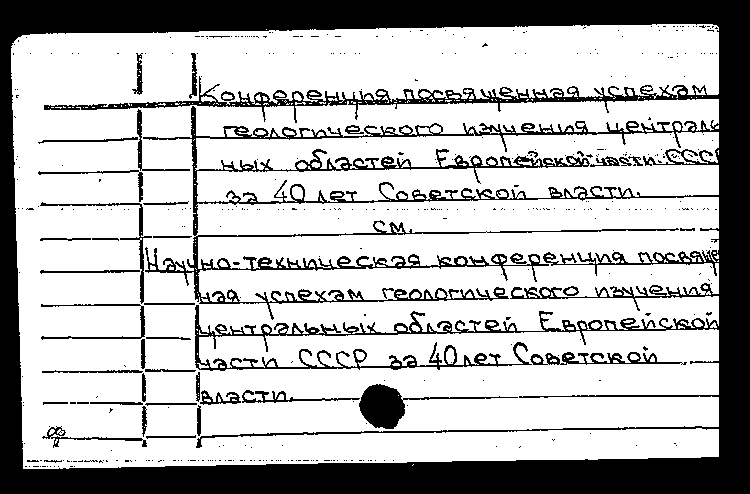 Конференция, посвященная успехам
геологического изучения централь
ных областей Европейской части СССР
за 40 лет Советской власти.
см.
Научно-техническая конференция посвяще
ная успехам геологического изучения
центральных областей Европейской
части СССР за 40 лет Советской
власти.